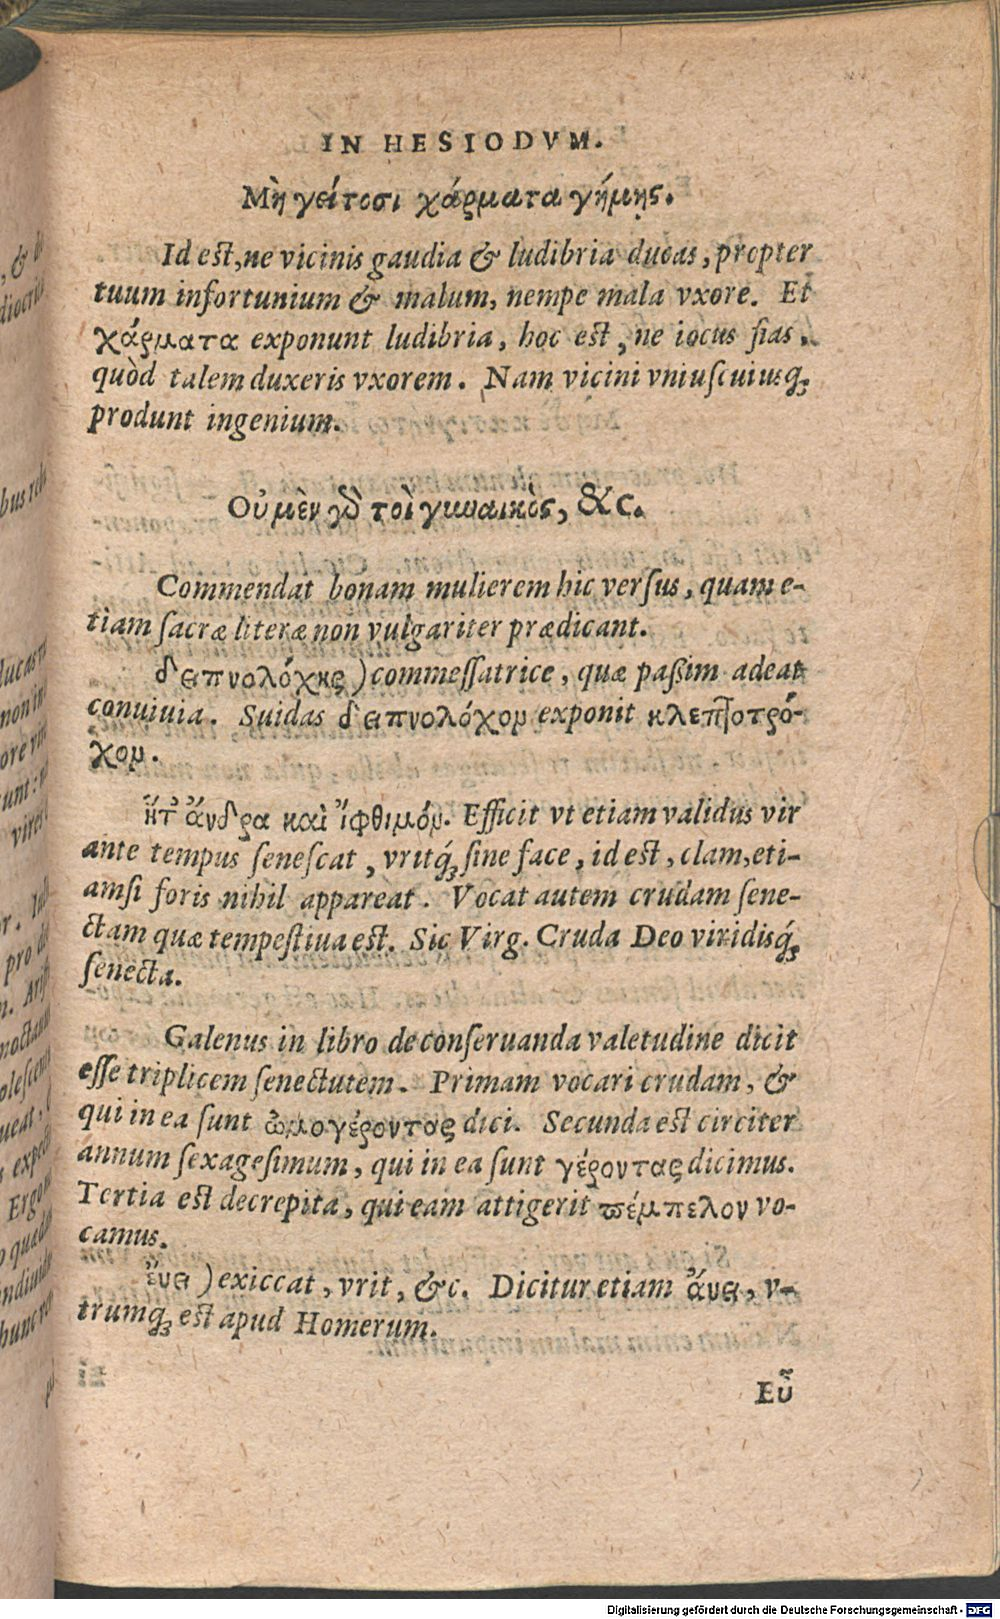 IN HESIODVM.
Μὴ γείτοσι χάρματα γήμῃς.
Id est, ne vicinis gaudia & ludibria ducas, propter
tuum infortunium & malum, nempe mala vxore. Et
χάρματα exponunt ludibria, hoc est, ne iocus fias,
quòd talem duxeris vxorem. Nam vicini vniuscuiusq́;
produnt ingenium.
Οὐ μὲν γὸ τοὶ γυναικὸς, &c.
Commendat bonam mulierem hic versus, quam e-
tiam sacræ literæ non vulgariter prædicant.
δειπνολόχης) commessatrice, quæ passim adeat
conuiuia. Suidas δειπνολόχον exponit κλεπτοτρό-
χον.
ἥτ᾽ ἄνδρα καὶ ἴφθιμόν. Efficit vt etiam validus vir
ante tempus senescat, vritq́; sine face, id est, clam, eti-
amsi foris nihil appareat. Vocat autem crudam sene-
ctam quæ tempestiua est. Sic Virg. Cruda Deo viridisq́;
senecta.
Galenus in libro de conseruanda valetudine dicit
esse triplicem senectutem. Primam vocari crudam, &
qui in ea sunt ὠμογέροντας dici. Secunda est circiter
annum sexagesimum, qui in ea sunt γέροντας dicimus.
Tertia est decrepita, qui eam attigerit πέμπελον vo-
camus.
ἕυει) exiccat, vrit, &c. Dicitur etiam ἄυει, v-
trumq; est apud Homerum.
Εὖ
Digitalisierung gefördert durch die Deutsche Forschungsgemeinschaft - DFG